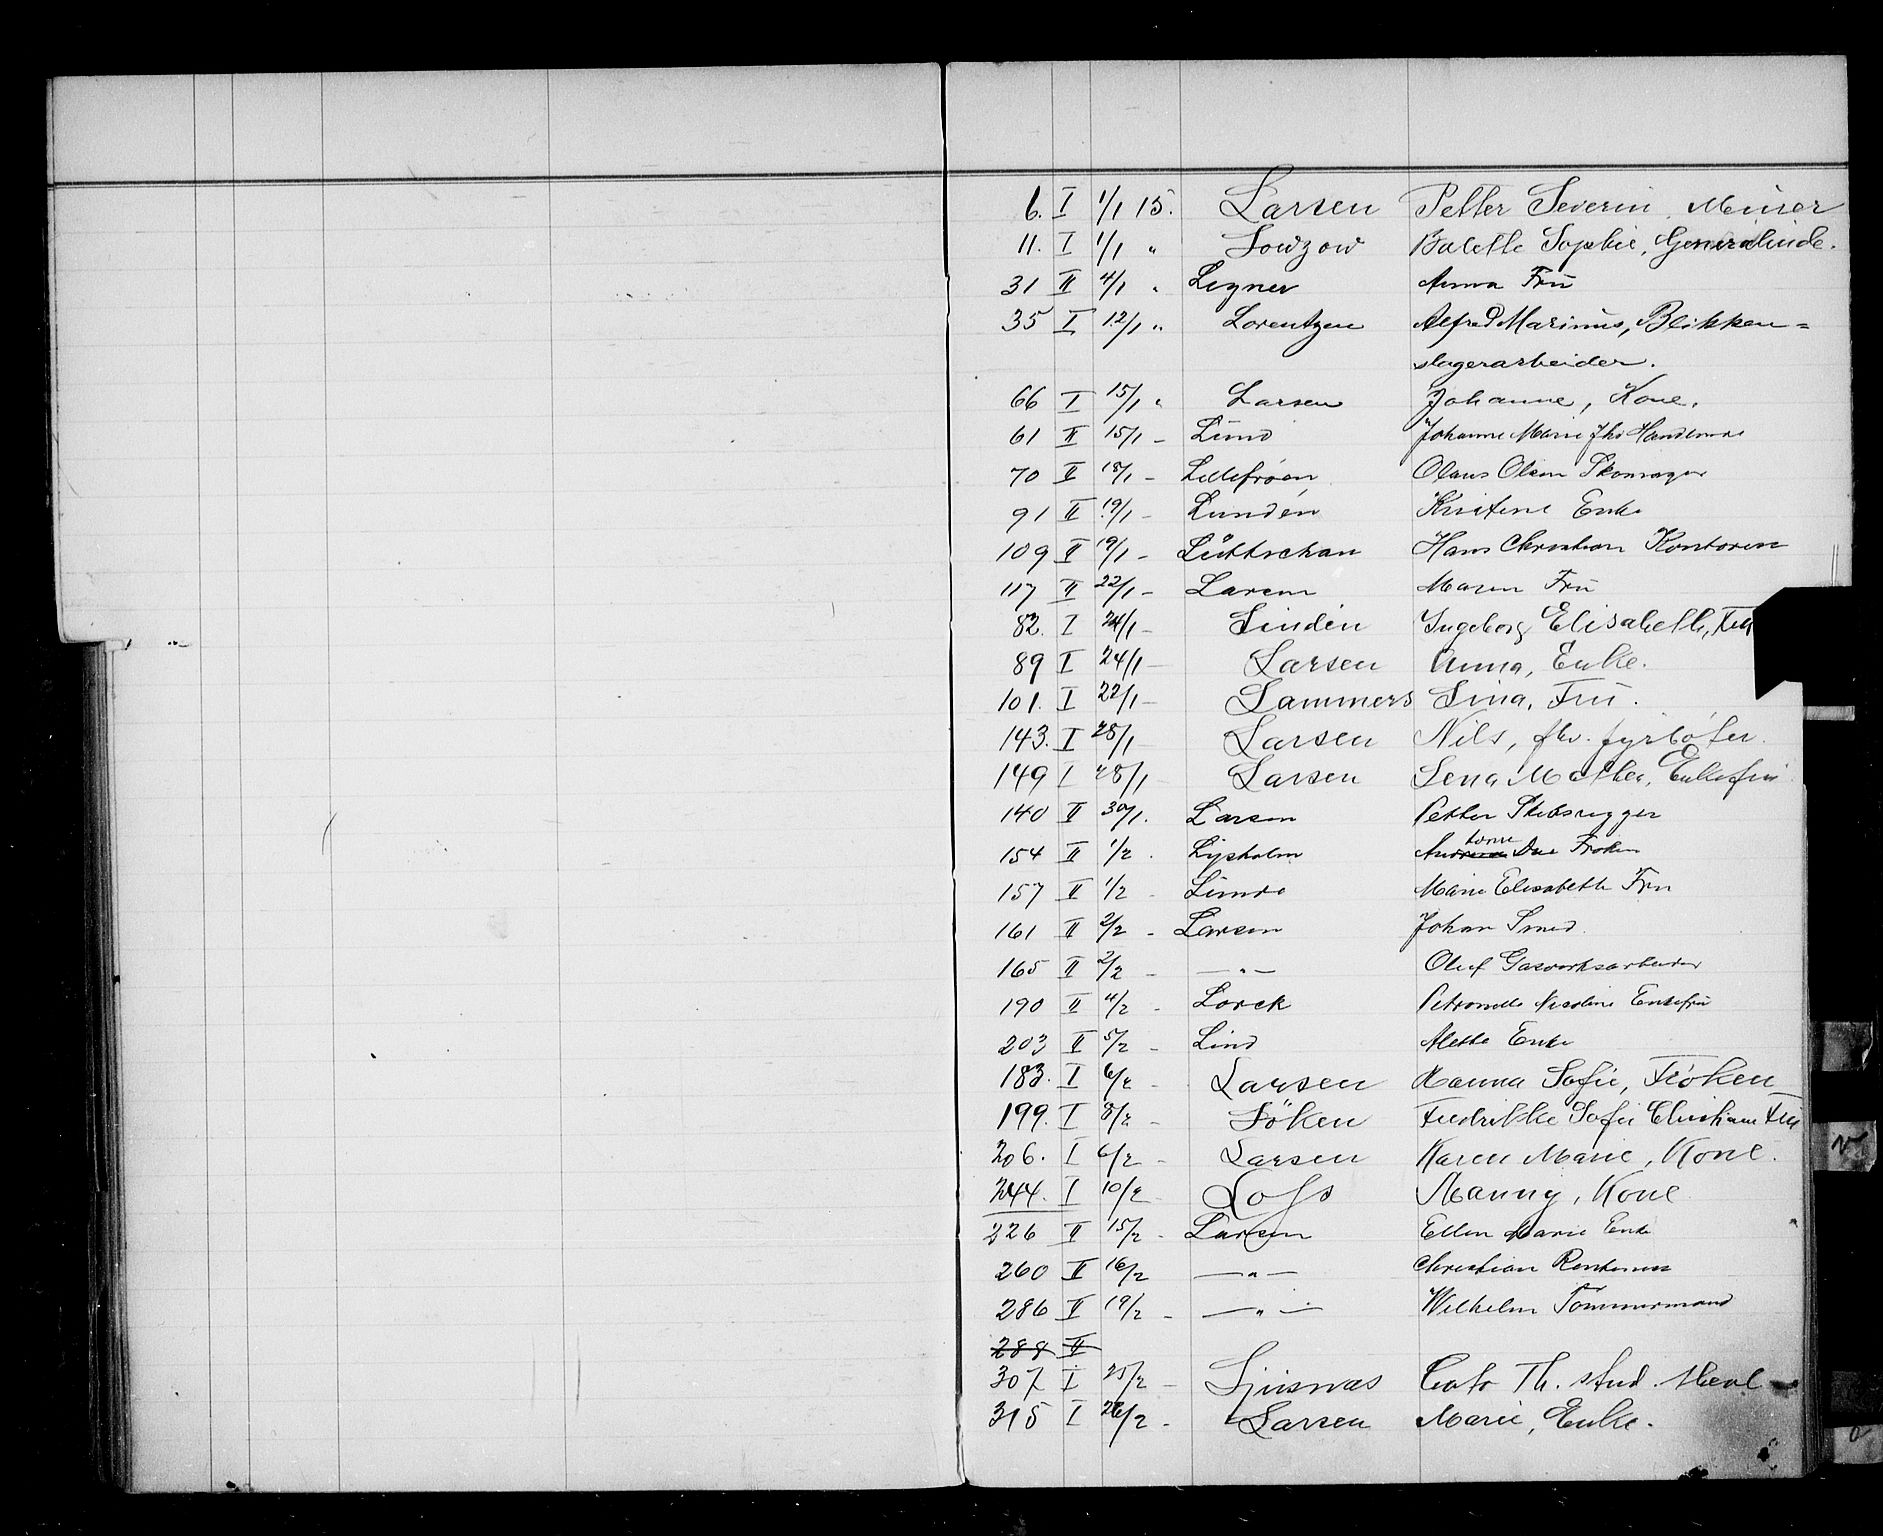 6. I 1/1 15. Larsen Petter Severin, Minør
11. I 1/1 " Lowzow Bolette Sophie, Generalinde.
31 II 4/1 " Legner Anna Fru
35 I 12/1 " Lorentzen Alfred Marinus, Blikken=
slagerarbeider.
66 I 15/1 " Larsen Johanne, Kone.
61 II 15/1 - Lund Johanne Marie fhv
70 II 18/1 - Lillefrøen Olaus Olsen Skomager
91 II 19/1 - Lundén Kristine Enke
109 II 19/1 - Hans Christian
117 II 22/1 - Larsen Maren Fru
82. I 24/1 - Lindén Ingeborg Elisabeth, Fru
89 I 24/1 - Larsen Anna, Enke.
101. I 22/1 - Lammers Lina, Fru.
143. I 28/1 Larsen Nils, fhv. fyrbøter.
149 I 28/1 Larsen Lena Mathea, Enkefru
140 II 30/1. Larsen Petter Skibsrigger
154 II 1/2 . Lysholm Due Frøken
157 II 1/2 - Linda Marie Elisabeth Fru
161 II 2/2 - Larsen Johan Smed.
165 II 2/2 - —"— Oluf Gasverksarbeider
190 II 4/2 - Lorck Petronelle Nicoline Enkefru
203 II 5/2 - Lind Mette Enke
183. I 6/2 - Larsen Hanna Sofie, Frøken
199. I 8/2 - Løken Fredrikke Sofie Christiane Fru
206. I 6/2 - Larsen Karen Marie, Kone.
244. I 10/2 Lofs Nanny, Kone
226 II 15/2 - Larsen Ellen Marie Enke
260 II 16/2 —"— Christian Rentenist
286 II 19/2 - —"— Wilhelm Tømmermand
288 II
307 I 25/2 - Ljusnæs Cato Th. stud.
315 I 26/2 - Larsen Marie, Enke.